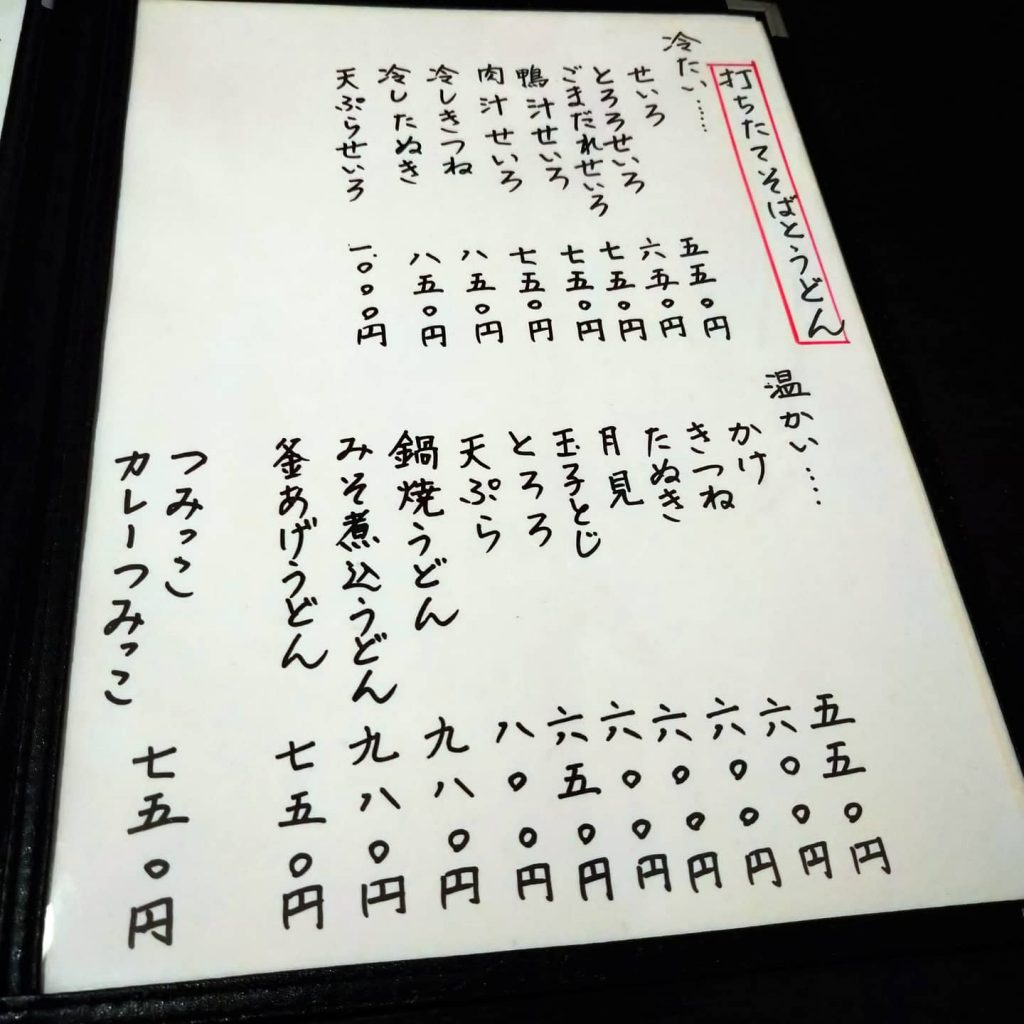 打ちたてそばとうどん
冷たい……
せいろ 五五〇円
とろろせいろ 六五〇円
ごまだれせいろ 七五〇円
鴨汁せいろ 七五〇円
肉汁せいろ 七五〇円
冷しきつね 八五〇円
冷したぬき 八五〇円
天ぷらせいろ 一、〇〇〇円
温かい……
かけ 五五〇円
きつね 六〇〇円
たぬき 六〇〇円
月見 六〇〇円
玉子とじ 六〇〇円
とろろ 六五〇円
天ぷら 八〇〇円
鍋焼うどん 九八〇円
みそ煮込うどん 九八〇円
釜あげうどん 七五〇円
つみっこ
カレーつみっこ 七五〇円